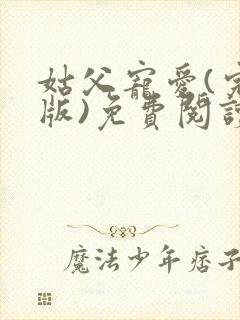 姑父寵愛(完
版)免費閱讀
魔法少年痞子